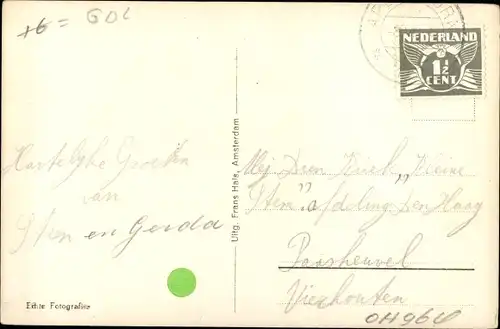 +6 = GDL
NEDERLAND
1 1/2
CENT
Hartelijke Groeten
van
Sten en Gerda
Uitg. Frans Hals, Amsterdam
Mej Dien „Kleine
Sten" afdeling Den Haag
Paasheuvel
Vierhouten
OH964
Echte Fotografie